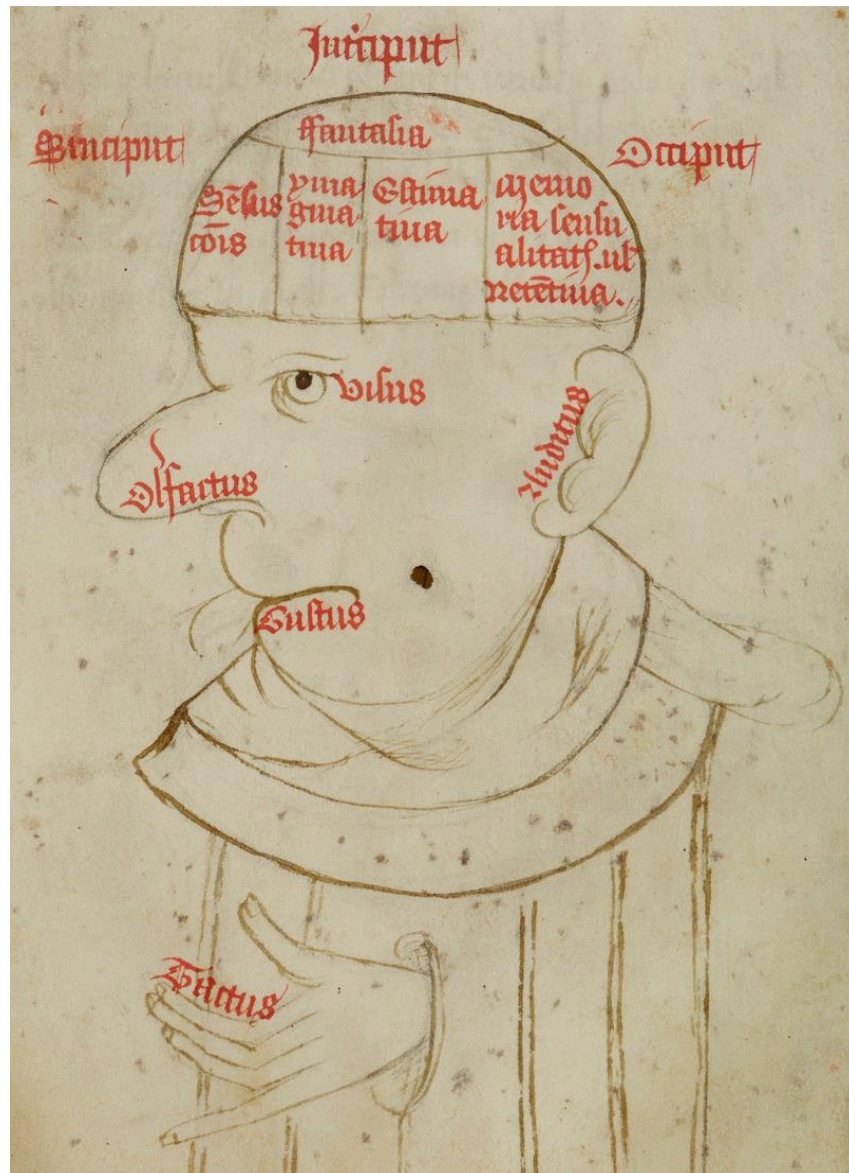 Int'ciput
Sinciput
ffantasia
Occiput
Sēsus
cōis
yma
gina
tiua
Estima
tiua
memo
ria sensu
alitatꝭ. ul'
retētiua.
Visus
Auditus
Olfactus
Gustus
Tactus